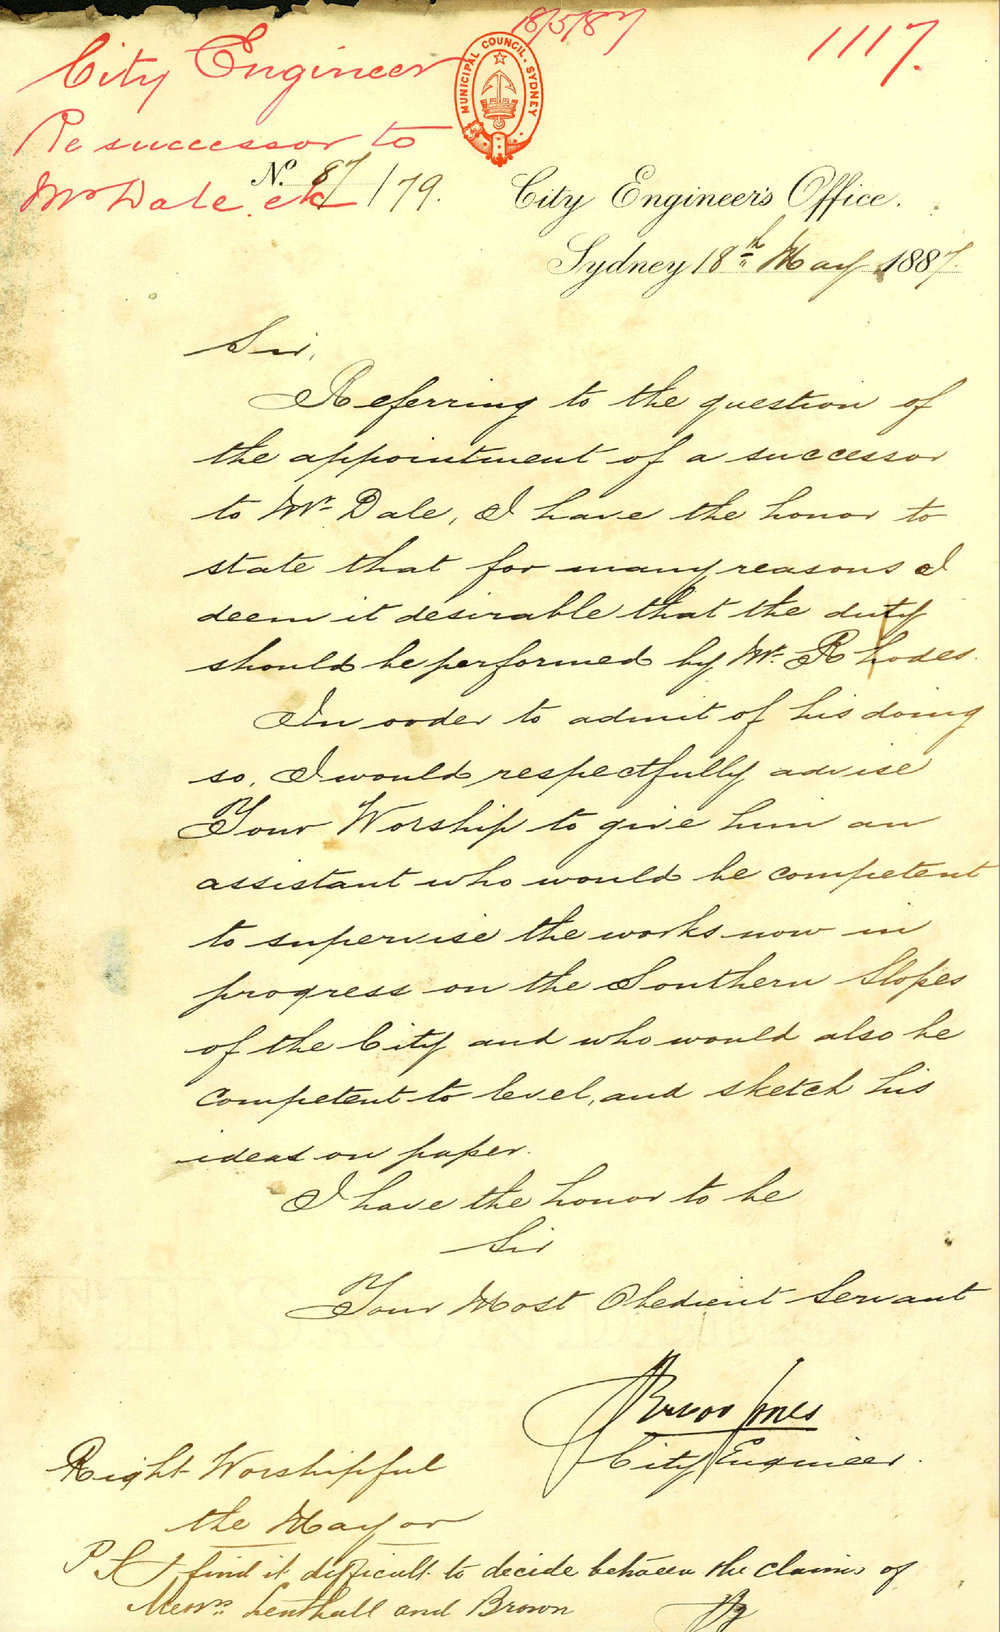 18/5/87
1117.
City Engineer
Re successor to
Mr Dale. etc
MUNICIPAL COUNCIL. SYDNEY
No. 87/179.
City Engineer's Office.
Sydney 18th May 1887.
Sir,
Referring to the question of
the appointment of a successor
to Mr. Dale, I have the honor to
state that for many reasons I
deem it desirable that the duty
should be performed by Mr. Rhodes.
In order to admit of his doing
so, I would respectfully advise
Your Worship to give him an
assistant who would be competent
to supervise the works now in
progress on the Southern Slopes
of the City and who would also be
competent to level, and sketch his
ideas on paper.
I have the honor to be
Sir
Your Most Obedient Servant
Trevor Jones
City Engineer.
Right Worshipful
the Mayor
P S I find it difficult to decide between the claims of
Messrs. Lenthall and Brown